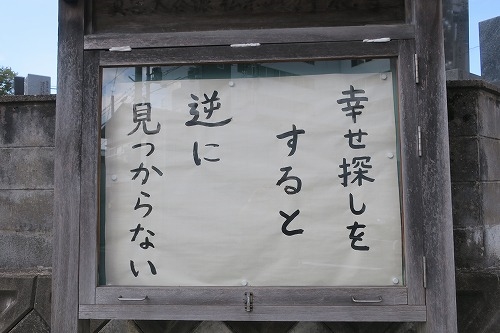 幸せ探しを
すると
逆に
見つからない